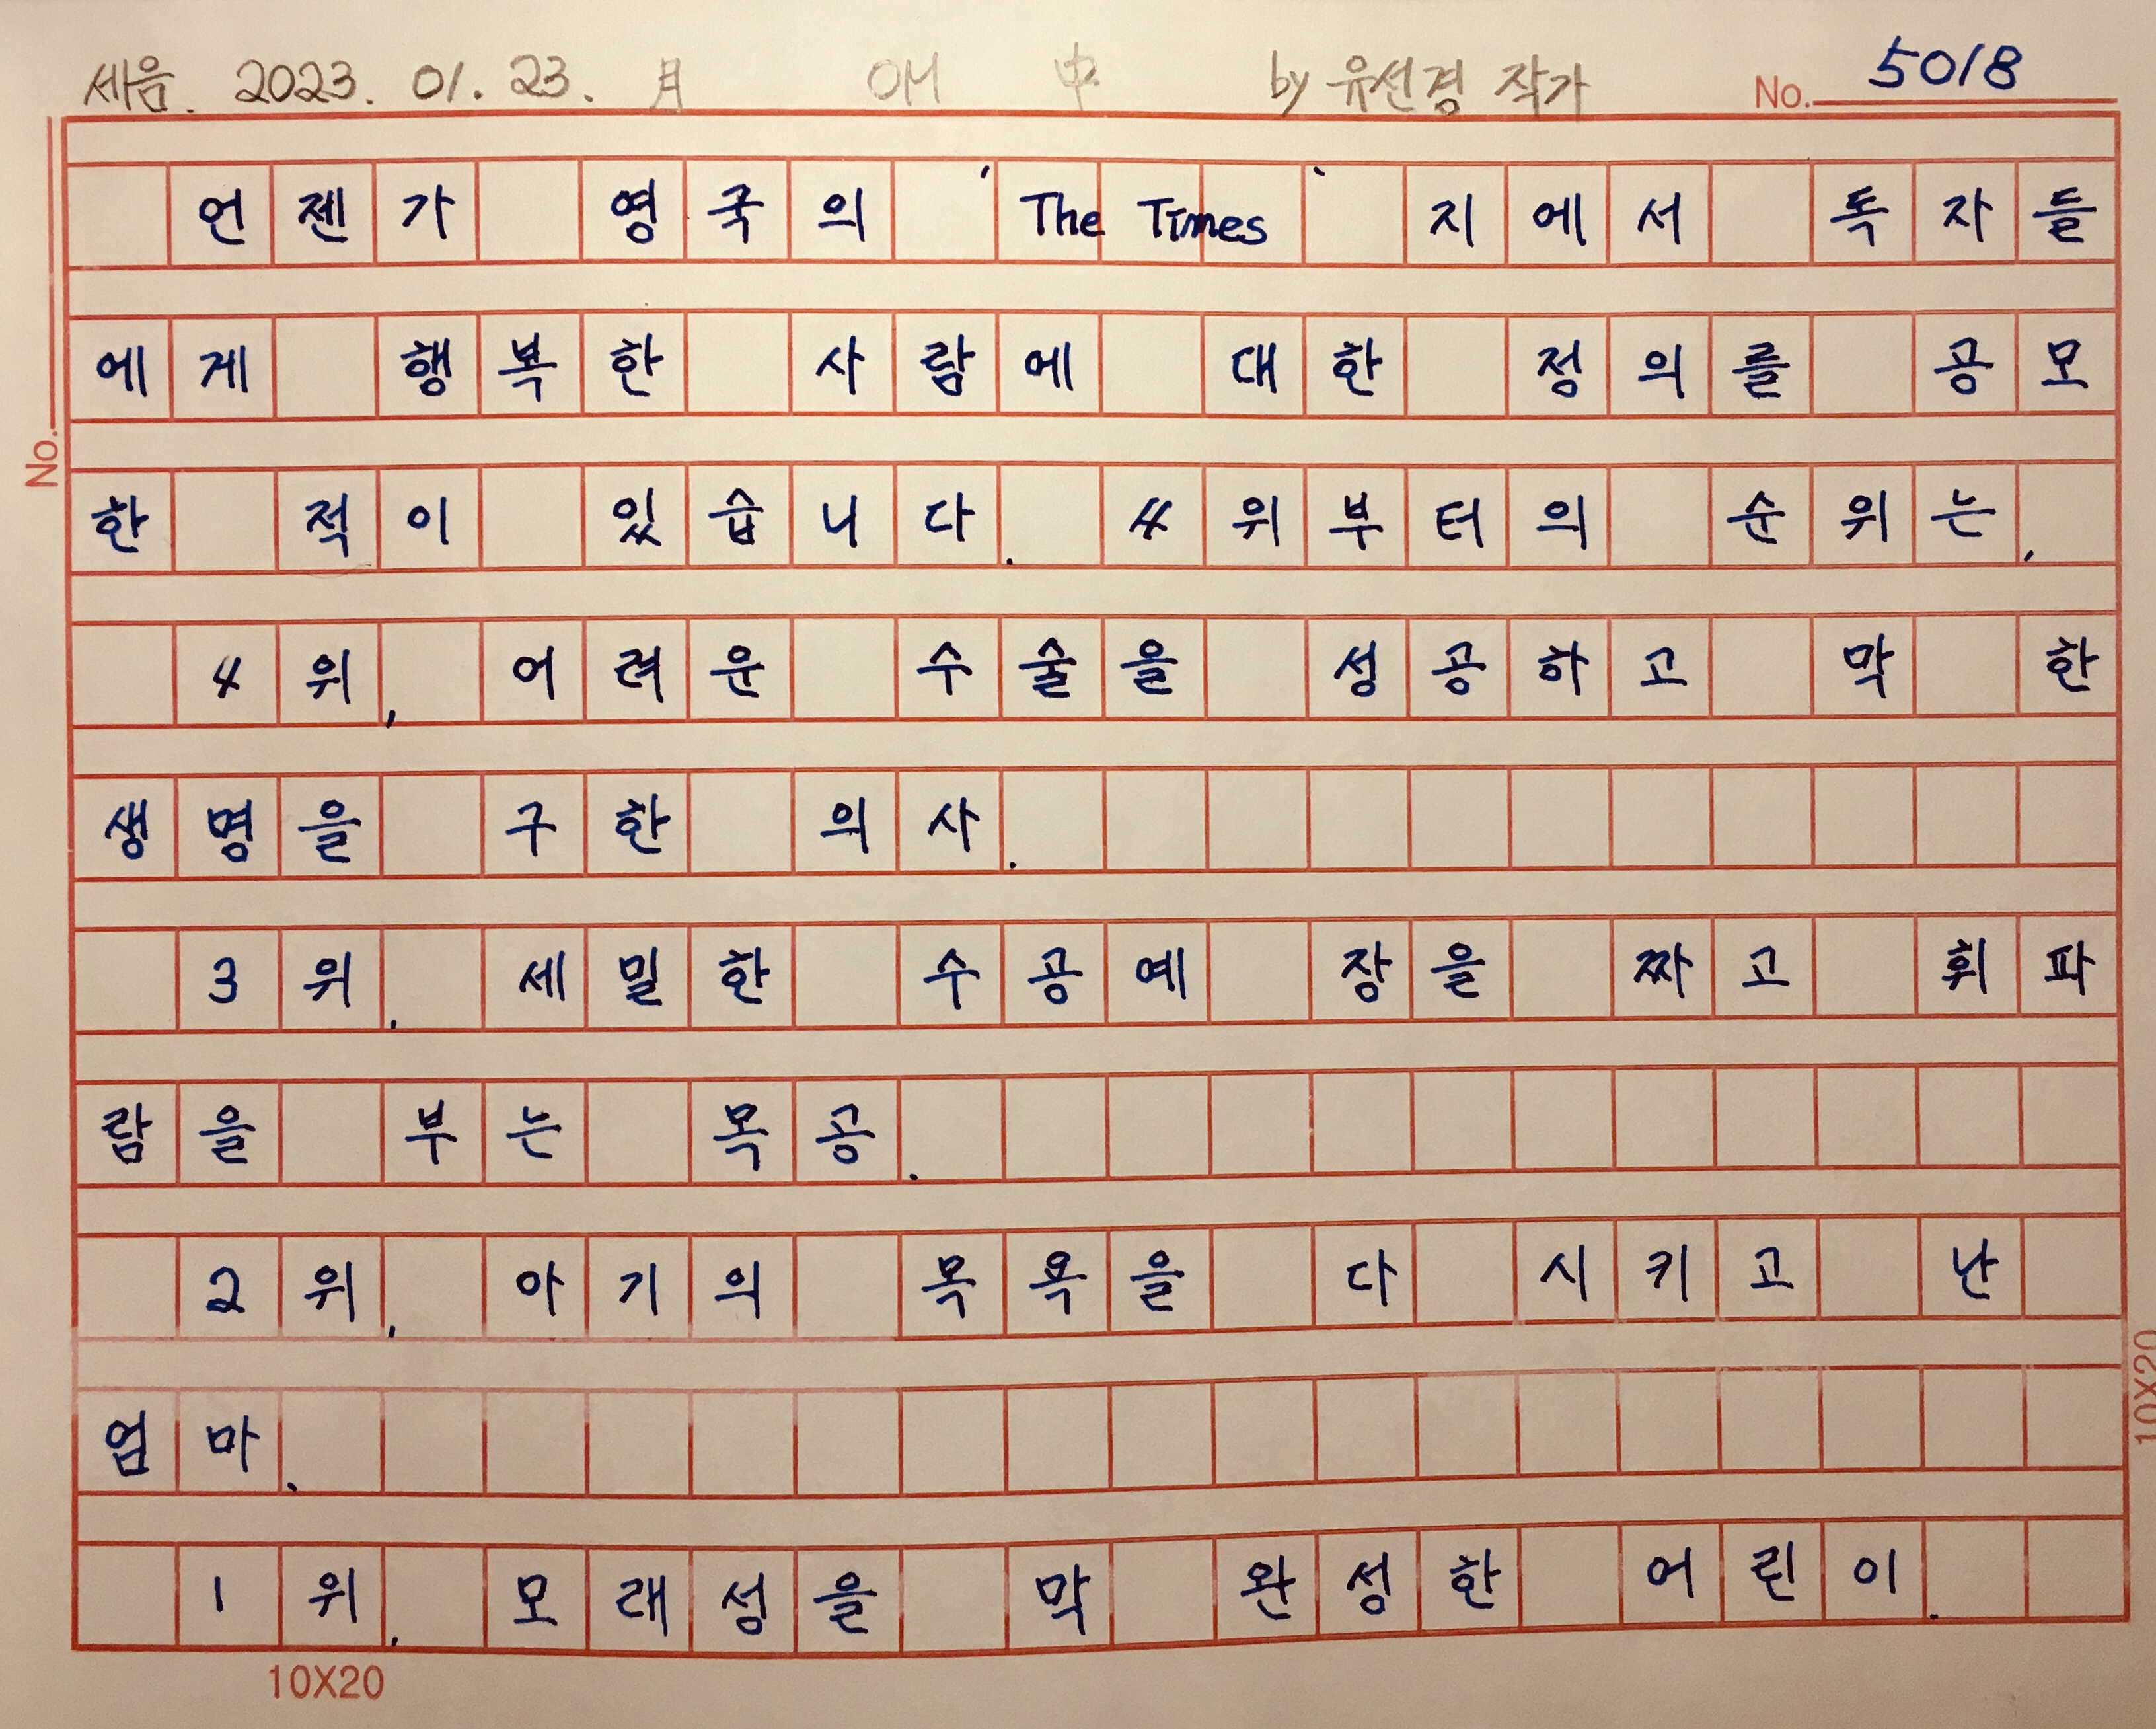 세음. 2023. 01. 23. 月 OM 中 by 유선경 작가 No. 5018
언젠가 영국의 'The Times' 지에서 독자들
에게 행복한 사람에 대한 정의를 공모
한 적이 있습니다. 4위부터의 순위는,
4위, 어려운 수술을 성공하고 막 한
생명을 구한 의사.
3위, 세밀한 수공예 장을 짜고 휘파
람을 부는 목공.
2위, 아기의 목욕을 다 시키고 난
엄마.
1위, 모래성을 막 완성한 어린이.
No.
10X20
10X20